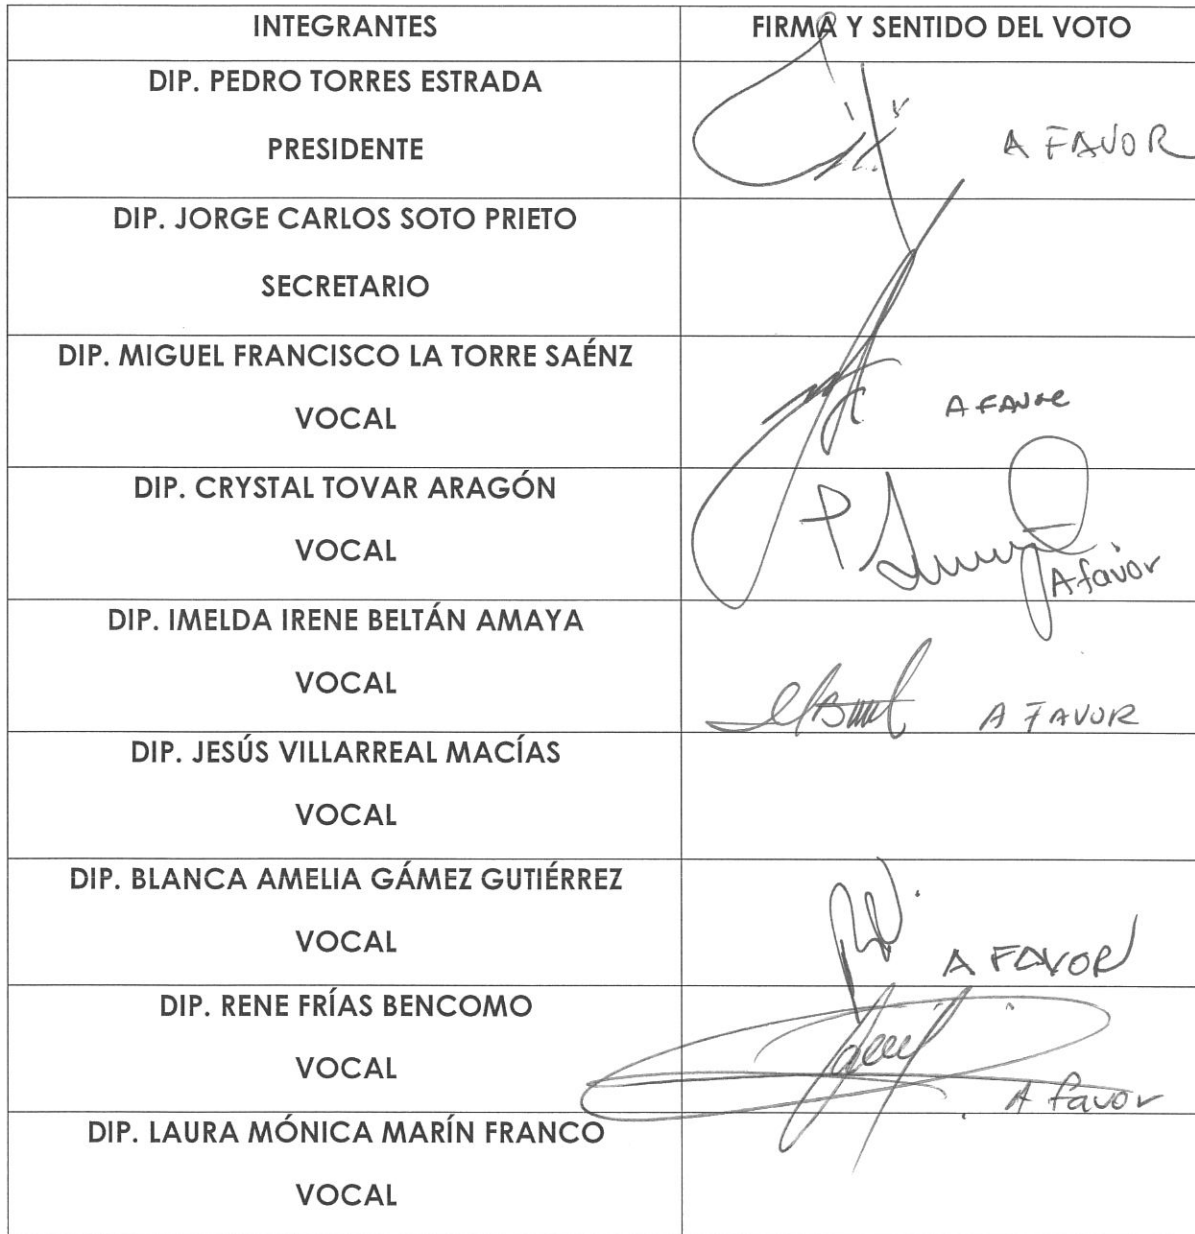 INTEGRANTES
FIRMA Y SENTIDO DEL VOTO
DIP. PEDRO TORRES ESTRADA
PRESIDENTE
A FAVOR
DIP. JORGE CARLOS SOTO PRIETO
SECRETARIO
DIP. MIGUEL FRANCISCO LA TORRE SAÉNZ
VOCAL
A FAVOR
DIP. CRYSTAL TOVAR ARAGÓN
VOCAL
A favor
DIP. IMELDA IRENE BELTÁN AMAYA
VOCAL
A FAVOR
DIP. JESÚS VILLARREAL MACÍAS
VOCAL
DIP. BLANCA AMELIA GÁMEZ GUTIÉRREZ
VOCAL
A FAVOR
DIP. RENE FRÍAS BENCOMO
VOCAL
A favor
DIP. LAURA MÓNICA MARÍN FRANCO
VOCAL